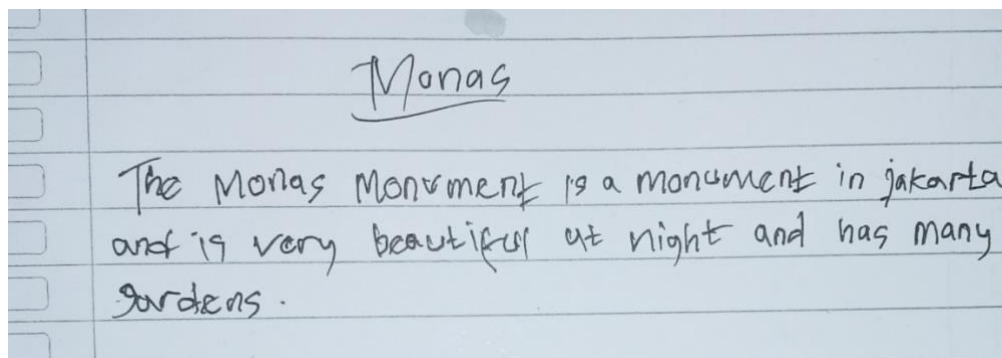 Monas
The Monas Monument is a monument in jakarta
and is very beautiful at night and has many
gardens.